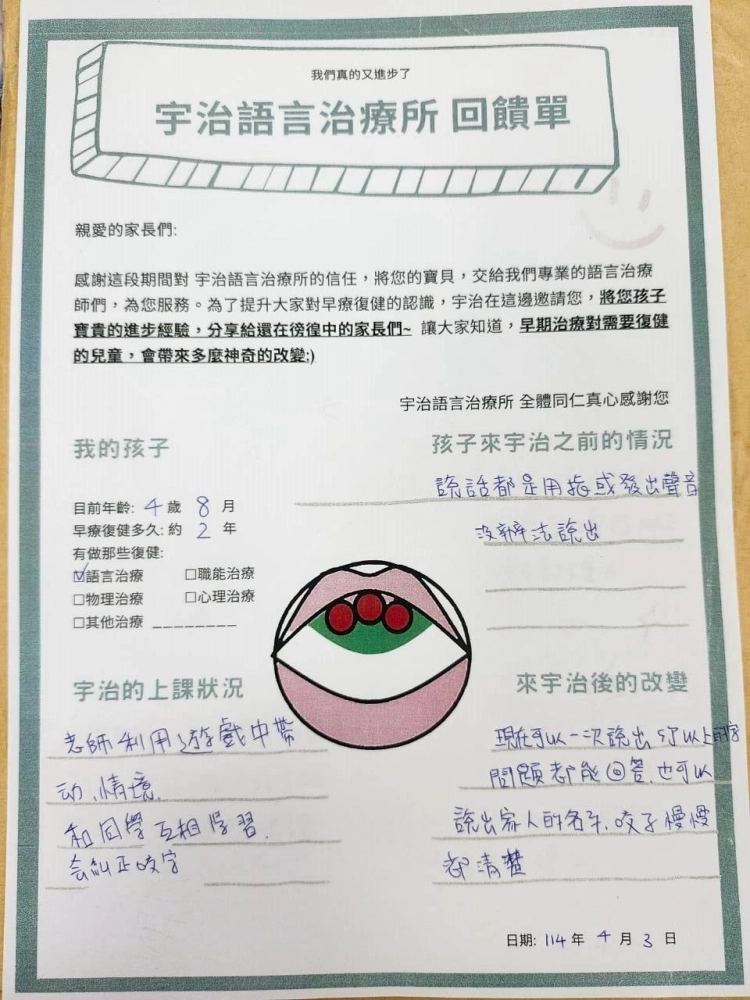 我們真的又進步了
宇治語言治療所 回饋單
親愛的家長們:
感謝這段期間對 宇治語言治療所的信任，將您的寶貝，交給我們專業的語言治療
師們，為您服務。為了提升大家對早療復健的認識，宇治在這邊邀請您，將您孩子
寶貴的進步經驗，分享給還在徬徨中的家長們~ 讓大家知道，早期治療對需要復健
的兒童，會帶來多麼神奇的改變:)
宇治語言治療所 全體同仁真心感謝您
我的孩子
目前年齡: 4 歲 8 月
早療復健多久: 約 2 年
有做那些復健:
☑語言治療 □職能治療
□物理治療 □心理治療
□其他治療 ________
孩子來宇治之前的情況
說話都是用指或發出聲音
沒辦法說出
宇治的上課狀況
老師利用遊戲中帶
动、情境、
和同學互相學習、
会糾正咬字
來宇治後的改變
現在可以一次說出5字以上
問題都能回答、也可以
說出家人的名字、咬字慢慢
都清楚
日期: 114 年 4 月 3 日